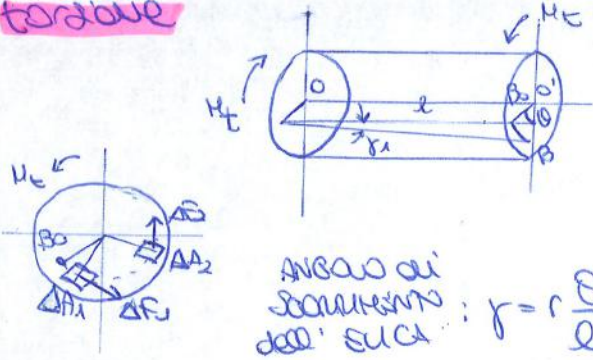 torsione
Mt
Mt
O
B0 O'
l
θ
γ1
B
Mt
B0
ΔF2
ΔA2
ΔA1
ΔF1
ANGOLO DI
SCORRIMENTO
dell' ELICA : γ = r θ/l